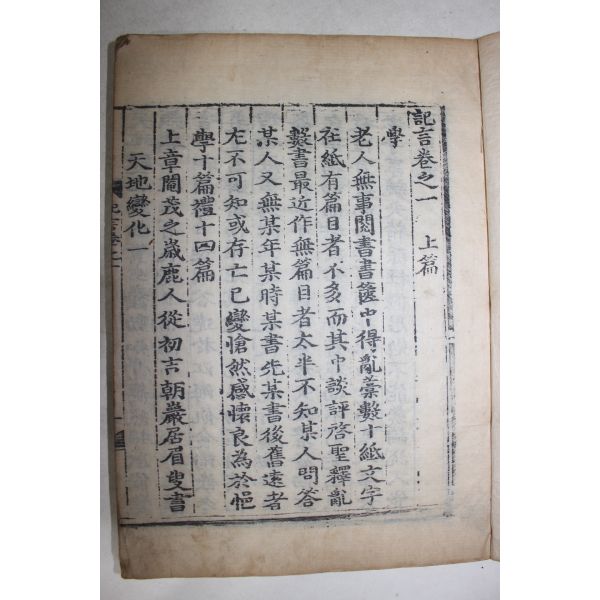 記言卷之一 上篇
學
老人無事閱書書篋中得亂藁數十紙文字
在紙有篇目者不多而其中談評啓聖釋亂
數書最近作無篇目者太半不知某人問答
某人又無某年某時某書先某書後舊遠者
尤不可知或存亡已變愴然感懷良為於悒
學十篇禮十四篇
上章閹茂之歲鹿人從初吉朝嚴居眉叟書
天地變化一